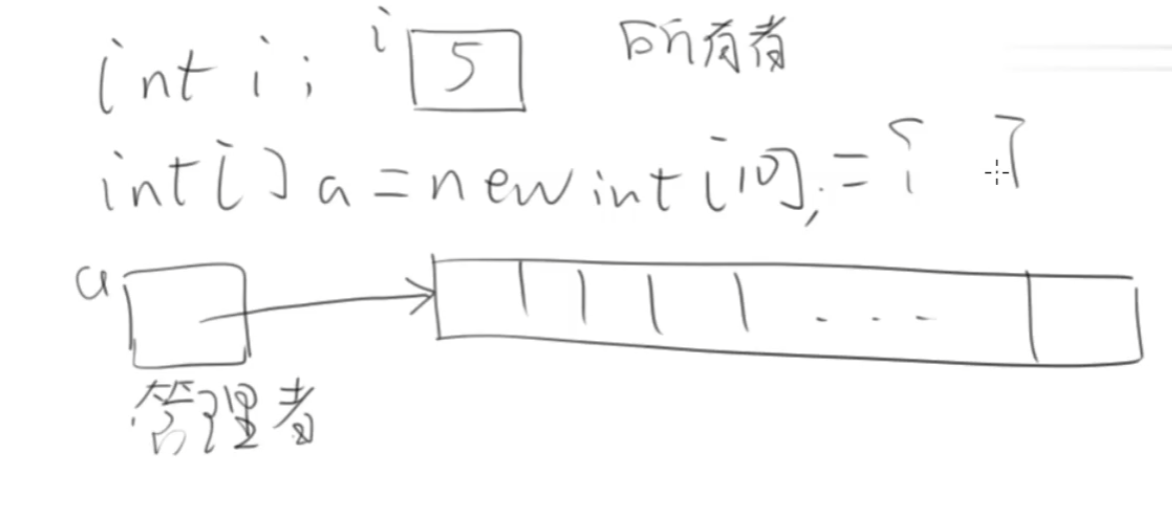 int i; i 5 所有者
int[] a = new int[10]; = { }
a ...
管理者